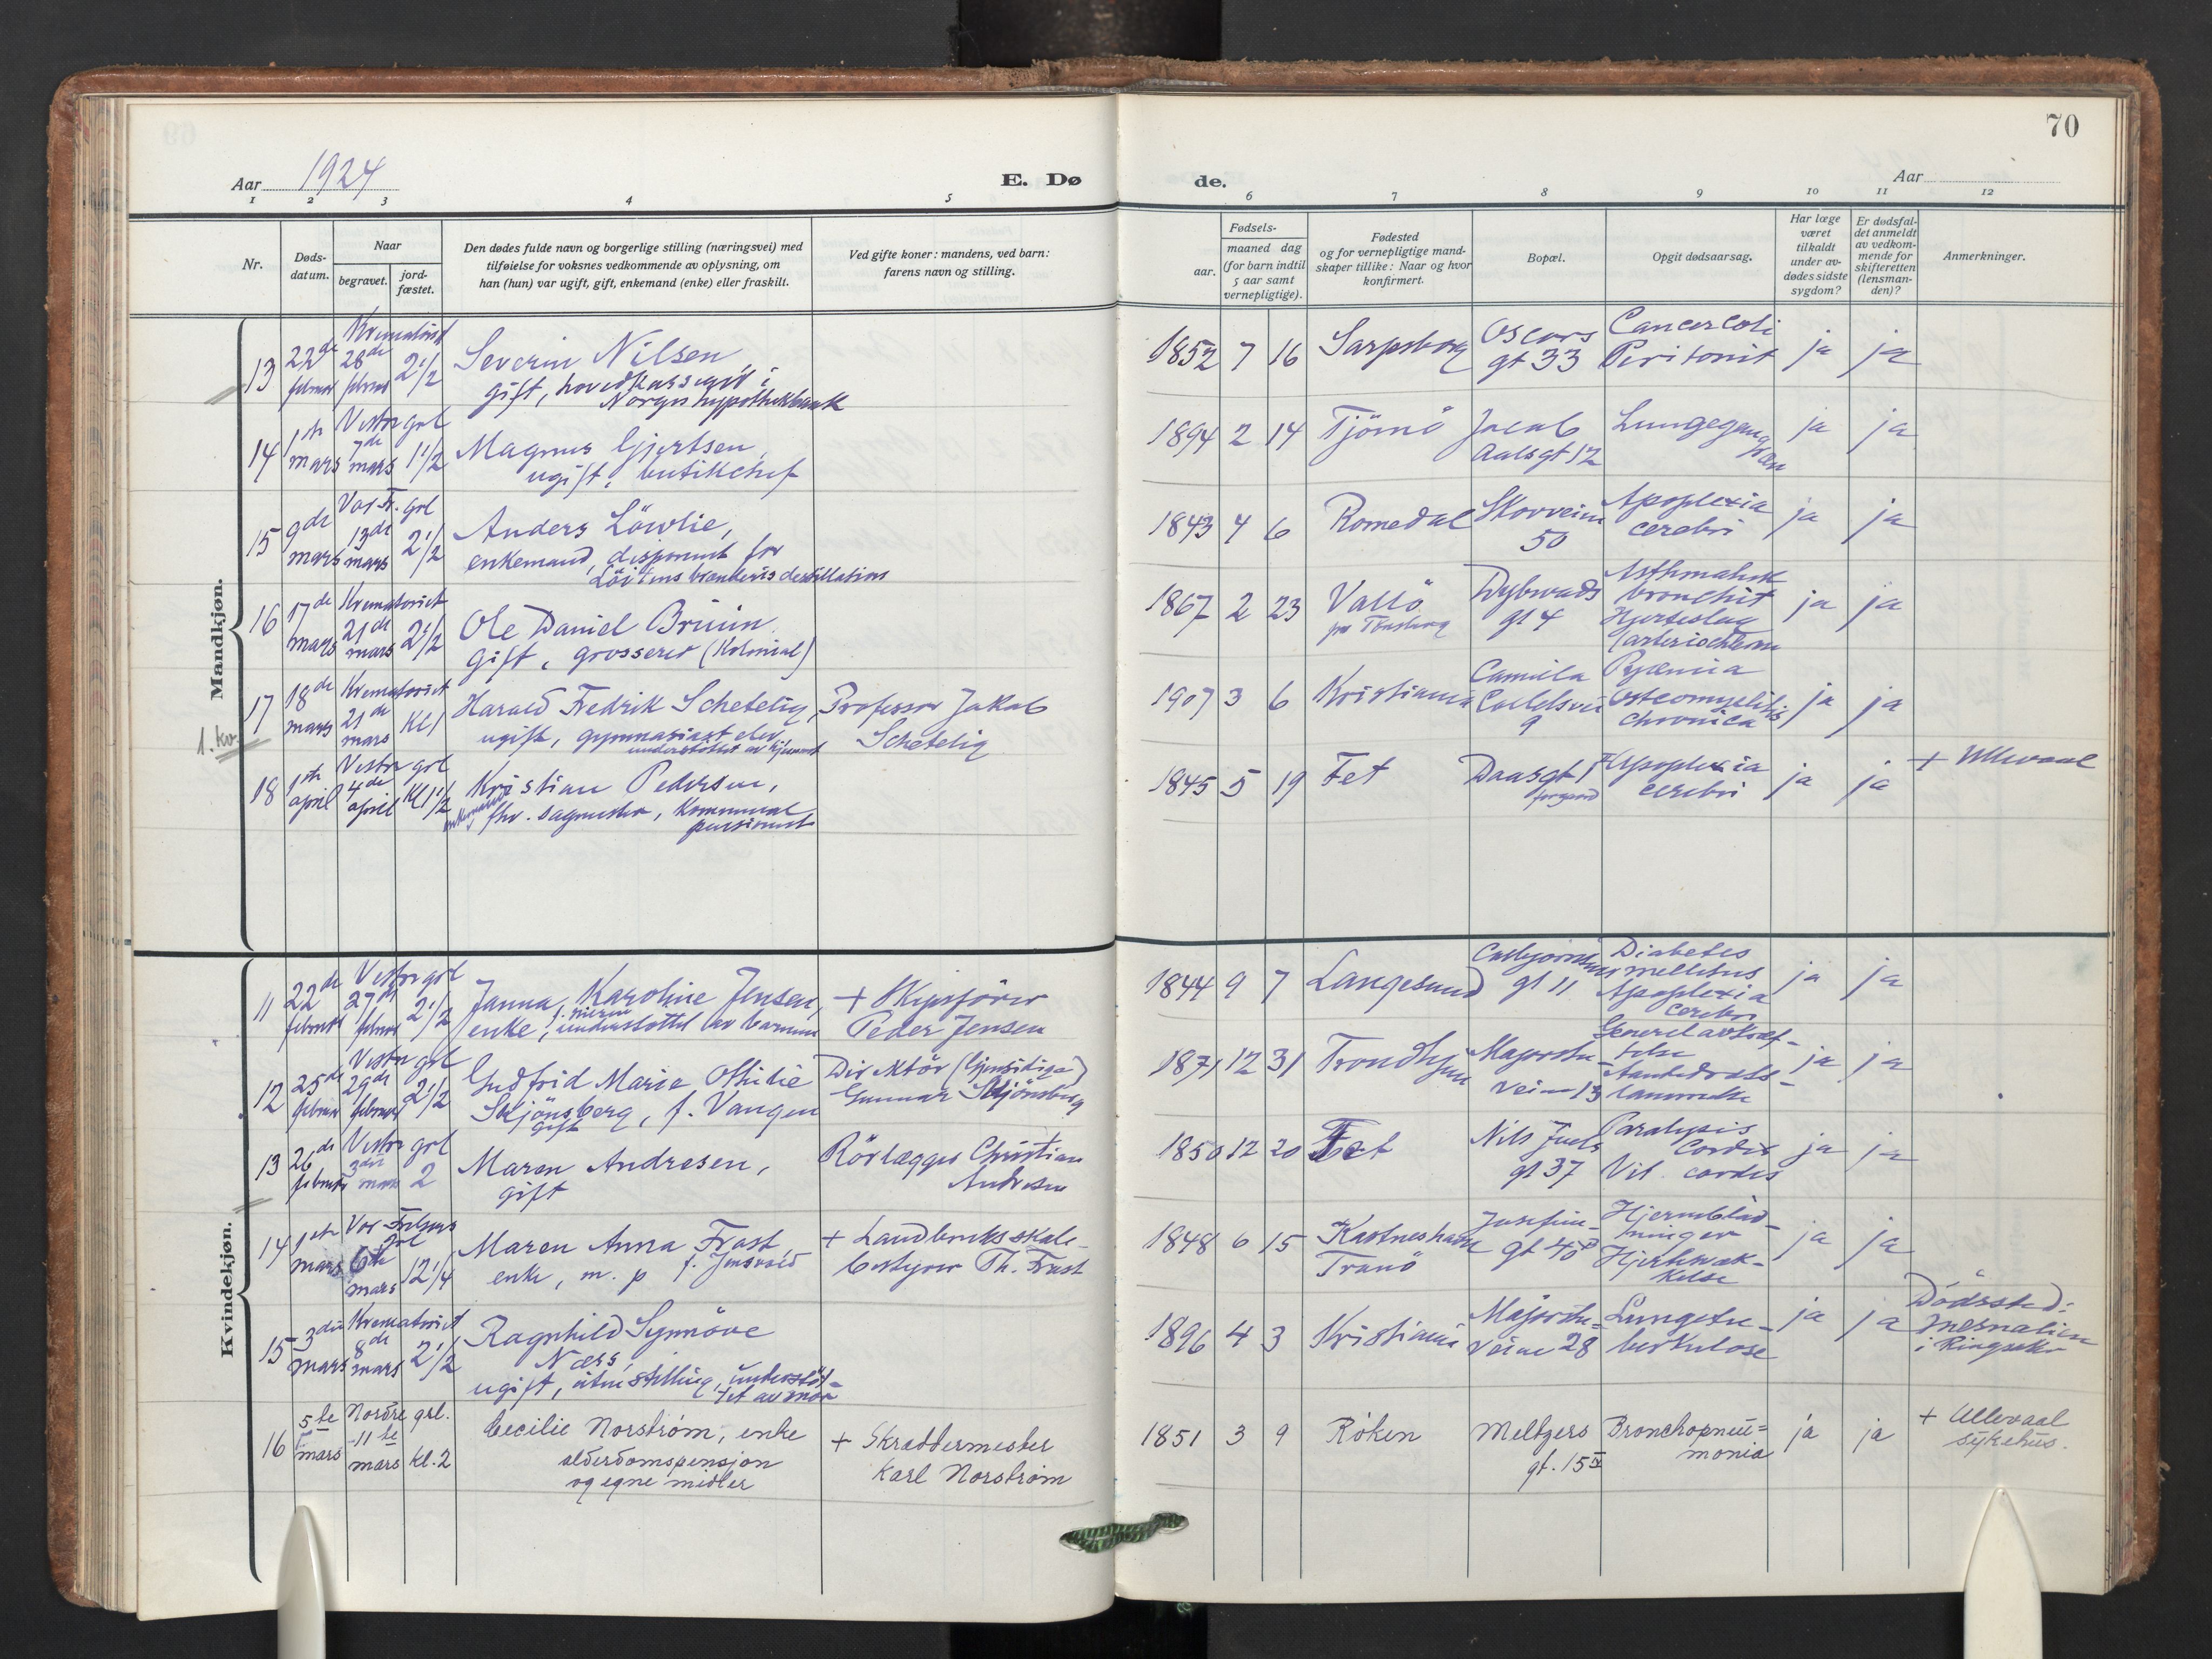 70
Aar 1924
E. Dø
de.
Aar
1 2 3 4 5 6 7 8 9 10 11 12
Nr.
Døds-
datum.
Naar
begravet.
jord-
fæstet.
Den dødes fulde navn og borgerlige stilling (næringsvei) med
tilføielse for voksnes vedkommende av oplysning, om
han (hun) var ugift, gift, enkemand (enke) eller fraskilt.
Ved gifte koner: mandens, ved barn:
farens navn og stilling.
Fødsels-
aar.
maaned dag
(for barn indtil
5 aar samt
vernepligtige).
Fødested
og for vernepligtige mand-
skaper tillike: Naar og hvor
konfirmert.
Bopæl.
Opgit dødsaarsag.
Har læge
været
tilkaldt
under av-
dødes sidste
sygdom?
Er dødsfal-
det anmeldt
av vedkom-
mende for
skifteretten
(lensman-
den)?
Anmerkninger.
Mandkjøn.
13 22de februar Krematoriet 28de februar 2 1/2
Severin Nilsen
gift, hovedkasserer i
Norges hypothekbank
1852 7 16 Sarpsborg Oscars gt 33 Cancer coli Peritonit ja ja
14 1ste mars Vestre grl 7de mars 1 1/2
Magnus Gjertsen,
ugift, butikchef
1894 2 14 Tjömö Jacob Aalsgt 12 Lungegangræn ja ja
15 9de mars Vor Fr. grl 13de mars 2 1/2
Anders Lövlie,
enkemand, disponent for
Löitens brænderis destillation
1843 4 6 Romedal Skovveien 50 Apoplexia cerebri ja ja
16 17de mars Krematoriet 21de mars 2 1/2
Ole Daniel Bruun
gift, grosserer (Kolonial)
1867 2 23 Vallö pr Tönsberg Dybwads gt 4 Asthmatisk bronchit Hjerteslag ja ja
1. Kv.
17 18de mars Krematoriet 21de mars Kl 1
Harald Fredrik Schetelig,
ugift, gymnasiast elev
understöttet av hjemmet
Professor Jakob
Schetelig
1907 3 6 Kristiania Camilla Colletsvei 9 Pyæmia osteomyelitis chronica ja ja
18 1ste april Vestre grl 4de april Kl 1 1/2
Kristian Pedersen,
enkemand, fhv. sagmester, kommunal
pensionist
1845 5 19 Fet Daasgt 17 Apoplexia cerebri ja ja + Ullevaal
Kvindekjøn.
11 22de februar Vestre grl 27de februar 2 1/2
Janna Karoline Jensen,
enke, understöttet av barnene
+ Skipsförer
Peder Jensen
1844 9 7 Langesund Asbjørnsens gt 11 Diabetes mellitus Apoplexia cerebri ja ja
12 25de februar Vestre grl 29de februar 2 1/2
Gudfrid Marie Othilie
Skjönsberg, f. Vangen
gift
Direktör (Gjensidige)
Gunnar Skjönsberg
1871 12 31 Trondhjem Majorstu-
veien 13 Generel avkræf-
telse Aandedræts-
lammelse ja ja
13 26de februar Vestre grl 3die mars 2
Maren Andresen,
gift
Rörlægger Christian
Andresen
1850 12 20 Fet Nils Juels gt 37 Paralysis cordis Vit. cordis ja ja
14 1ste mars Vor Frelsers grl 6te mars 12 1/4
Maren Anna Frost
enke, m. p
+ Landbruksskole-
bestyrer Th. Frost
1848 6 15 Kastneshavn Tranö Josefine-
gt 40 Hjerneblød-
ninger Hjertesvæk-
kelse ja ja
15 3die mars Krematoriet 8de mars 2 1/2
Ragnhild Synnöve
Næss,
ugift, uten stilling, understöt-
tet av mor
1896 4 3 Kristiania Majorstu-
veien 28 Lungetu-
berkulose ja ja Dödssted:
Mesnalien
i Ringsaker
16 5te mars Nordre grl. 11te mars kl. 2
Cecilie Norstrøm, enke
alderdomspensjon
og egne midler
+ Skræddermester
Karl Norstrøm
1851 3 9 Røken Meltzers gt. 15 IV Bronchopneu=
monia ja ja + Ullevaal
sykehus.